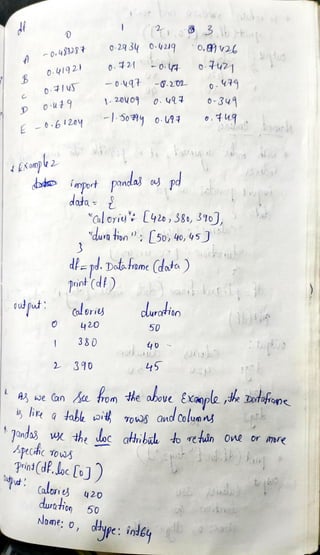 df
0 1 2 3
A -0.483287 0.2934 0.4219 0.891426
B 0.41921 0.721 -0.47 0.7421
C 0.7145 -0.497 -0.202 0.479
D 0.479 1.20409 0.497 0.349
E -0.61204 -1.50794 0.497 0.749
Example 2
import pandas as pd
data = {
"Calories": [420, 380, 390],
"duration": [50, 40, 45]
}
df = pd.Dataframe (data)
print (df)
output: calories duration
0 420 50
1 380 40
2 390 45
As we can see from the above Example, the Dataframe
is like a table with rows and columns
Pandas use the loc attribute to return one or more
specific rows
Print(df.loc [0])
output:
calories 420
duration 50
Name: 0, dtype: int64